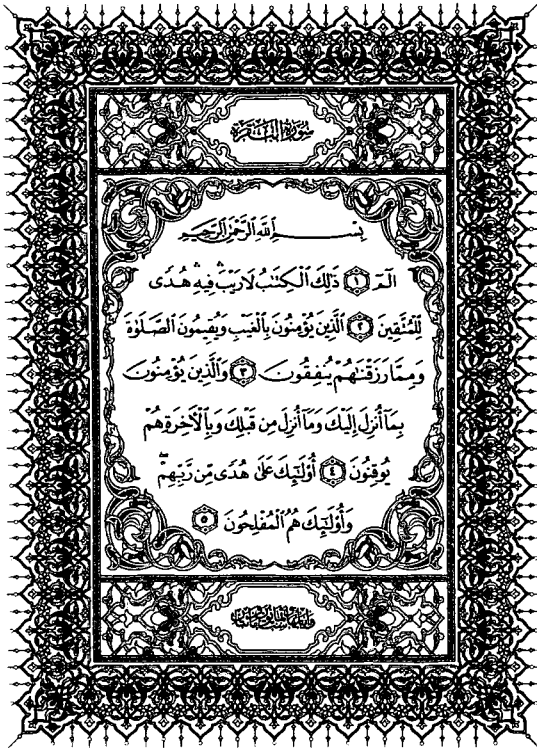 سُورَةُ البَقَرَةِ
بِسۡمِ ٱللَّهِ ٱلرَّحۡمَٰنِ ٱلرَّحِيمِ
الٓمٓ ١ ذَٰلِكَ ٱلۡكِتَٰبُ لَا رَيۡبَۛ فِيهِۛ هُدٗى
لِّلۡمُتَّقِينَ ٢ ٱلَّذِينَ يُؤۡمِنُونَ بِٱلۡغَيۡبِ وَيُقِيمُونَ ٱلصَّلَوٰةَ
وَمِمَّا رَزَقۡنَٰهُمۡ يُنفِقُونَ ٣ وَٱلَّذِينَ يُؤۡمِنُونَ
بِمَآ أُنزِلَ إِلَيۡكَ وَمَآ أُنزِلَ مِن قَبۡلِكَ وَبِٱلۡأٓخِرَةِ هُمۡ
يُوقِنُونَ ٤ أُوْلَٰٓئِكَ عَلَىٰ هُدٗى مِّن رَّبِّهِمۡۖ
وَأُوْلَٰٓئِكَ هُمُ ٱلۡمُفۡلِحُونَ ٥